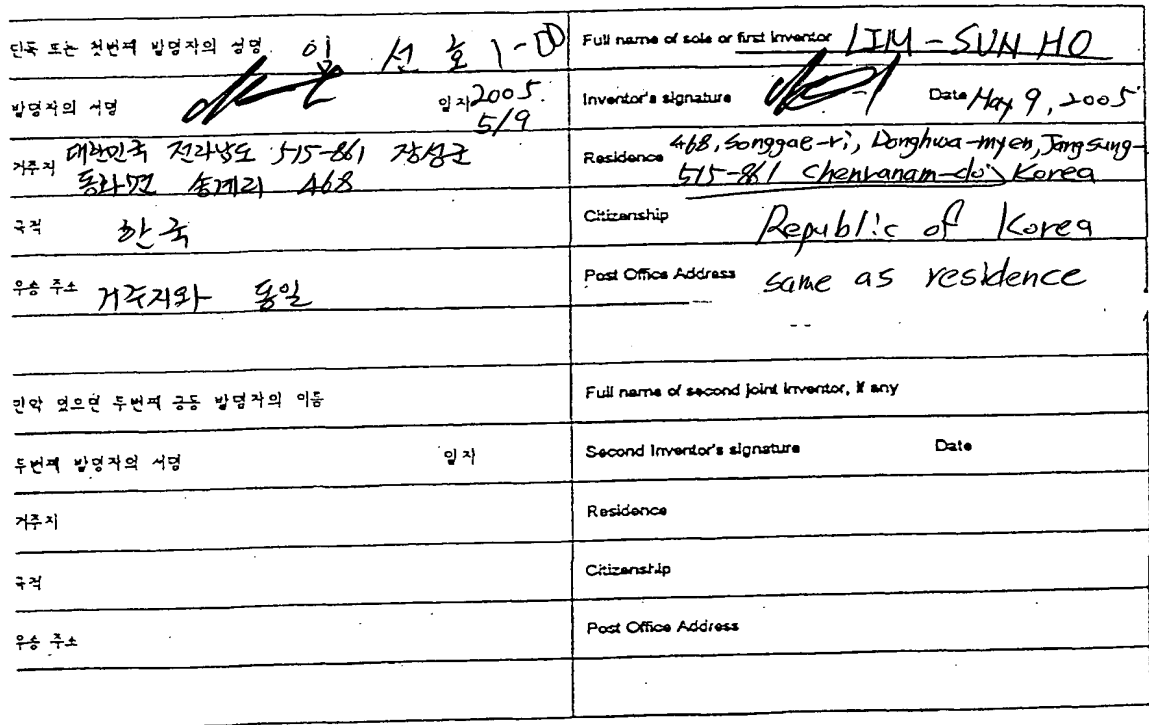 단독 또는 첫번째 발명자의 성명 임 선 호 1-00
발명자의 서명 일자 2005.
5/9
거주지 대한민국 전라남도 515-861 장성군
동화면 송계리 468
국적 한국
우송 주소 거주지와 동일
만약 있으면 두번째 공동 발명자의 이름
두번째 발명자의 서명 일자
거주지
국적
우송 주소
Full name of sole or first inventor LIM-SUN HO
Inventor's signature Date May 9, 2005
Residence 468, Songgae-ri, Donghwa-myen, Jangsung-
515-861 Chenranam-do, Korea
Citizenship Republic of Korea
Post Office Address same as residence
Full name of second joint inventor, if any
Second Inventor's signature Date
Residence
Citizenship
Post Office Address